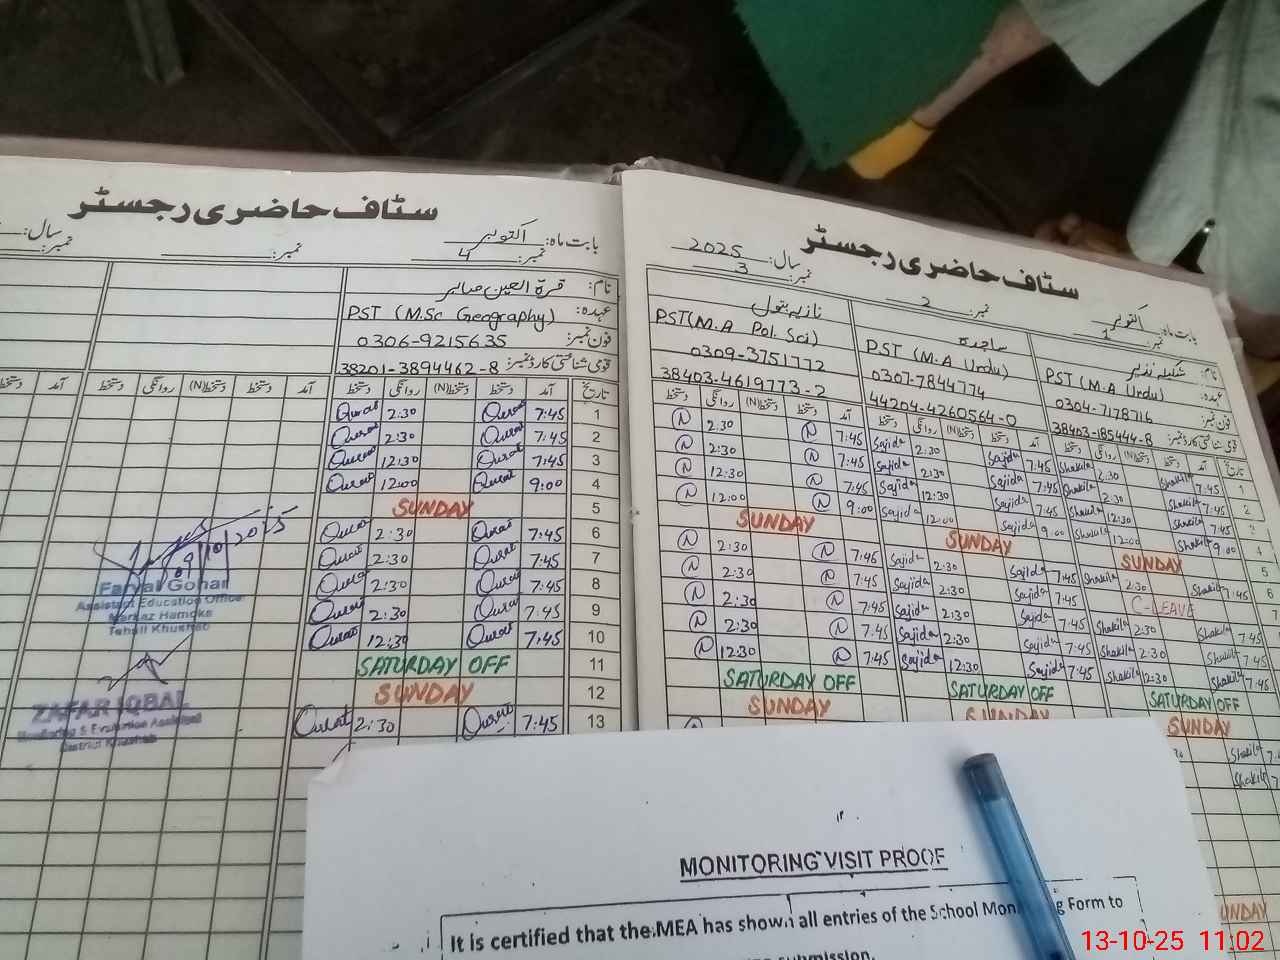 سٹاف حاضری رجسٹر
بابت ماہ: اکتوبر
نمبر: 4
نمبر:
سال:
نمبر:
نام: قرۃ العین صابر
عہدہ: PST (M.Sc Geography)
فون نمبر: 0306-9215635
قومی شناختی کارڈ نمبر: 38201-3894462-8
تاریخ آمد دستخط دستخط(N) روانگی دستخط آمد دستخط دستخط(N) روانگی دستخط آمد
Qurat 2:30 Qurat 7:45 1
Qurat 2:30 Qurat 7:45 2
Qurat 12:30 Qurat 7:45 3
Qurat 12:00 Qurat 9:00 4
SUNDAY 5
Qurat 2:30 Qurat 7:45 6
Qurat 2:30 Qurat 7:45 7
Qurat 2:30 Qurat 7:45 8
Qurat 2:30 Qurat 7:45 9
Qurat 12:30 Qurat 7:45 10
SATURDAY OFF 11
SUNDAY 12
Qurat 2:30 Qurat 7:45 13
09/10/2025
Faryal Gohar
Assistant Education Office
Markaz Hamoka
Tehsil Khushab
ZAFAR IQBAL
Monitoring & Evaluation Assistant
District Khushab
سٹاف حاضری رجسٹر
بابت ماہ: اکتوبر
سال: 2025
نمبر: 1
نمبر: 2
نمبر: 3
نام: شکیلہ نذیر
ساجدہ
نازیہ بتول
عہدہ: PST (M.A Urdu)
PST (M.A Urdu)
PST(M.A Pol. Sci)
فون نمبر: 0304-7178716
0307-7844774
0309-3751772
قومی شناختی کارڈ نمبر: 38403-185444-8
44204-4260564-0
38403-4619773-2
تاریخ آمد دستخط دستخط(N) روانگی دستخط آمد دستخط دستخط(N) روانگی دستخط آمد دستخط دستخط(N) روانگی دستخط
N 2:30 N 7:45 Sajida 2:30 Sajida 7:45 Shakila 2:30 Shakila 7:45 1
N 2:30 N 7:45 Sajida 2:30 Sajida 7:45 Shakila 2:30 Shakila 7:45 2
N 12:30 N 7:45 Sajida 12:30 Sajida 7:45 Shakila 12:30 Shakila 7:45 3
N 12:00 N 9:00 Sajida 12:00 Sajida 9:00 Shakila 12:00 Shakila 9:00 4
SUNDAY SUNDAY SUNDAY 5
N 2:30 N 7:45 Sajida 2:30 Sajida 7:45 Shakila 2:30 Shakila 7:45 6
N 2:30 N 7:45 Sajida 2:30 Sajida 7:45 C-LEAVE 7
N 2:30 N 7:45 Sajida 2:30 Sajida 7:45 Shakila 2:30 Shakila 7:45
N 2:30 N 7:45 Sajida 2:30 Sajida 7:45 Shakila 2:30 Shakila 7:45
N 12:30 N 7:45 Sajida 12:30 Sajida 7:45 Shakila 12:30 Shakila 7:45
SATURDAY OFF SATURDAY OFF SATURDAY OFF
SUNDAY SUNDAY SUNDAY
Shakila
Shakila
SUNDAY
MONITORING VISIT PROOF
It is certified that the MEA has shown all entries of the School Form to
submission.
13-10-25 11:02